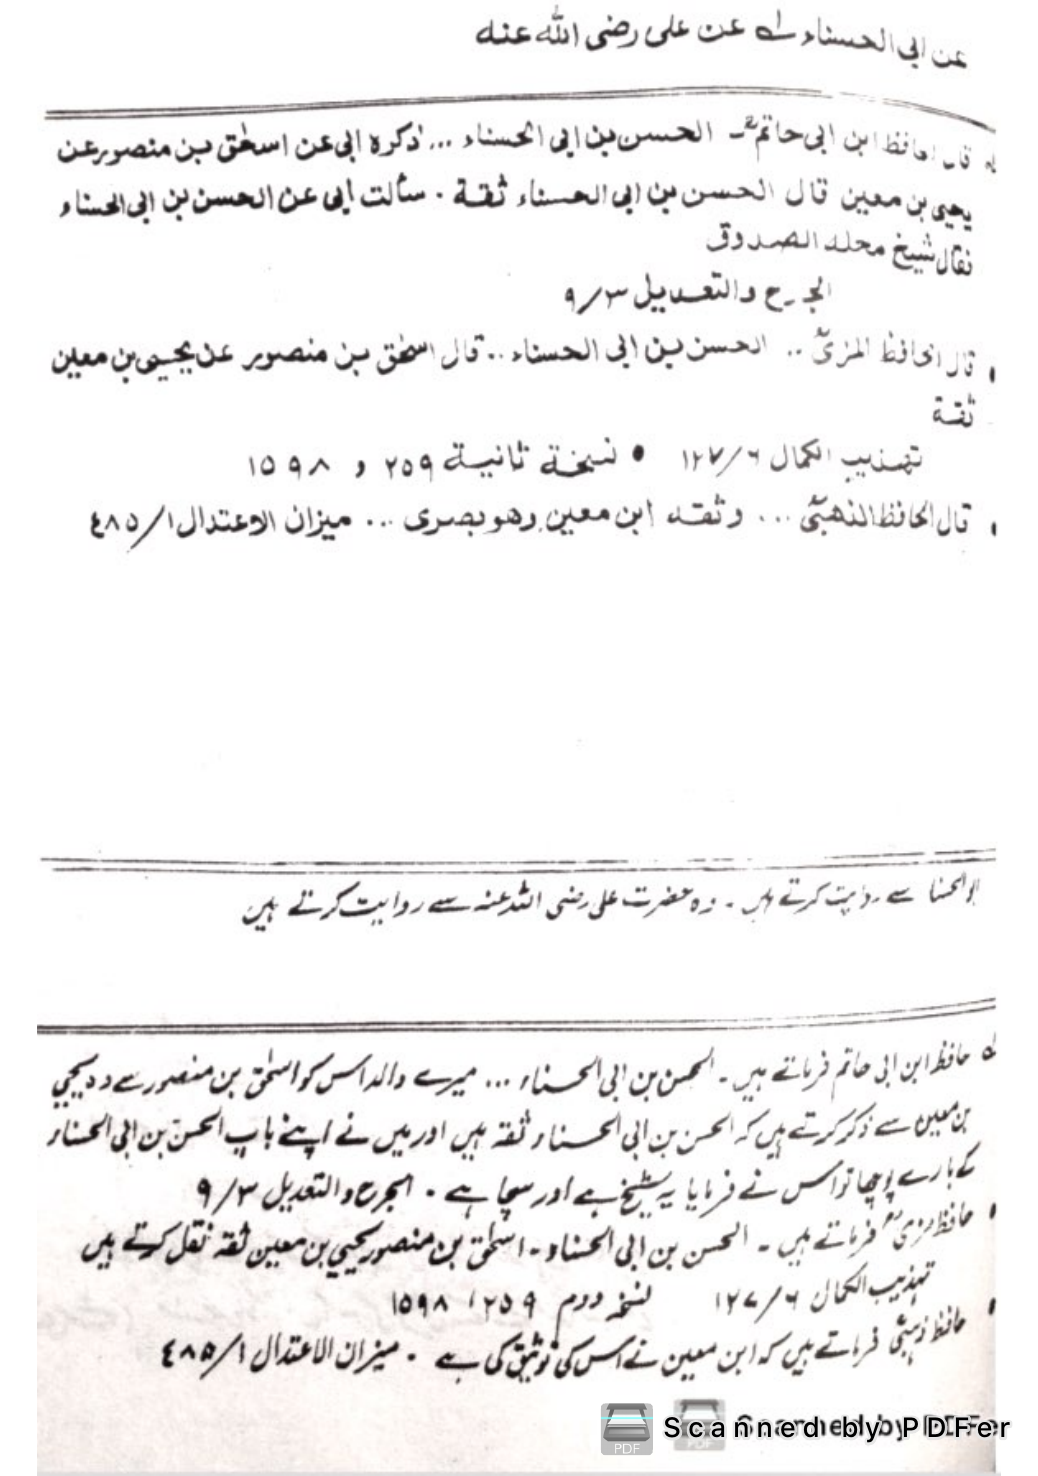 عن ابی الحسناء لہ عن علی رضی اللہ عنہ
لہ قال الحافظ ابن ابی حاتمؒ۔ الحسن بن ابی الحسناء ... ذکرہ ابی عن اسحٰق بن منصور عن
یحیی بن معین قال الحسن بن ابی الحسناء ثقة . سألت ابی عن الحسن بن ابی الحسناء
فقال شیخ محلہ الصدوق
الجرح والتعدیل ۹/۳
قال الحافظ المزیؒ .. الحسن بن ابی الحسناء .. قال اسحٰق بن منصور عن یحیی بن معین
ثقة
تہذیب الکمال ۱۲۷/۶ • نسخة ثانیة ۲۵۹ و ۱۵۹۸
قال الحافظ الذھبیؒ ... وثقہ ابن معین وھو بصری ... میزان الاعتدال ۱/۴۸۵
ابو الحسنا سے روایت کرتے ہیں ۔ وہ حضرت علی رضی اللہ عنہ سے روایت کرتے ہیں
لہ حافظ ابن ابی حاتم فرماتے ہیں ۔ الحسن بن ابی الحسناء ... میرے والد اس کو اسحٰق بن منصور سے وہ یحیی
بن معین سے ذکر کرتے ہیں کہ الحسن بن ابی الحسناء ثقہ ہیں اور میں نے اپنے باپ الحسن بن ابی الحسناء
کے بارے پوچھا تو اس نے فرمایا یہ شیخ ہے اور سچا ہے ۔ الجرح والتعدیل ۹/۳
حافظ مزیؒ فرماتے ہیں ۔ الحسن بن ابی الحسناء ۔ اسحٰق بن منصور یحیی بن معین ثقہ نقل کرتے ہیں
تہذیب الکمال ۱۲۷/۶ نسخہ دوم ۲۵۹، ۱۵۹۸
حافظ ذہبیؒ فرماتے ہیں کہ ابن معین نے اس کی توثیق کی ہے ۔ میزان الاعتدال ۱/۴۸۵
Scanned by PDFer
Scanned by PDFer